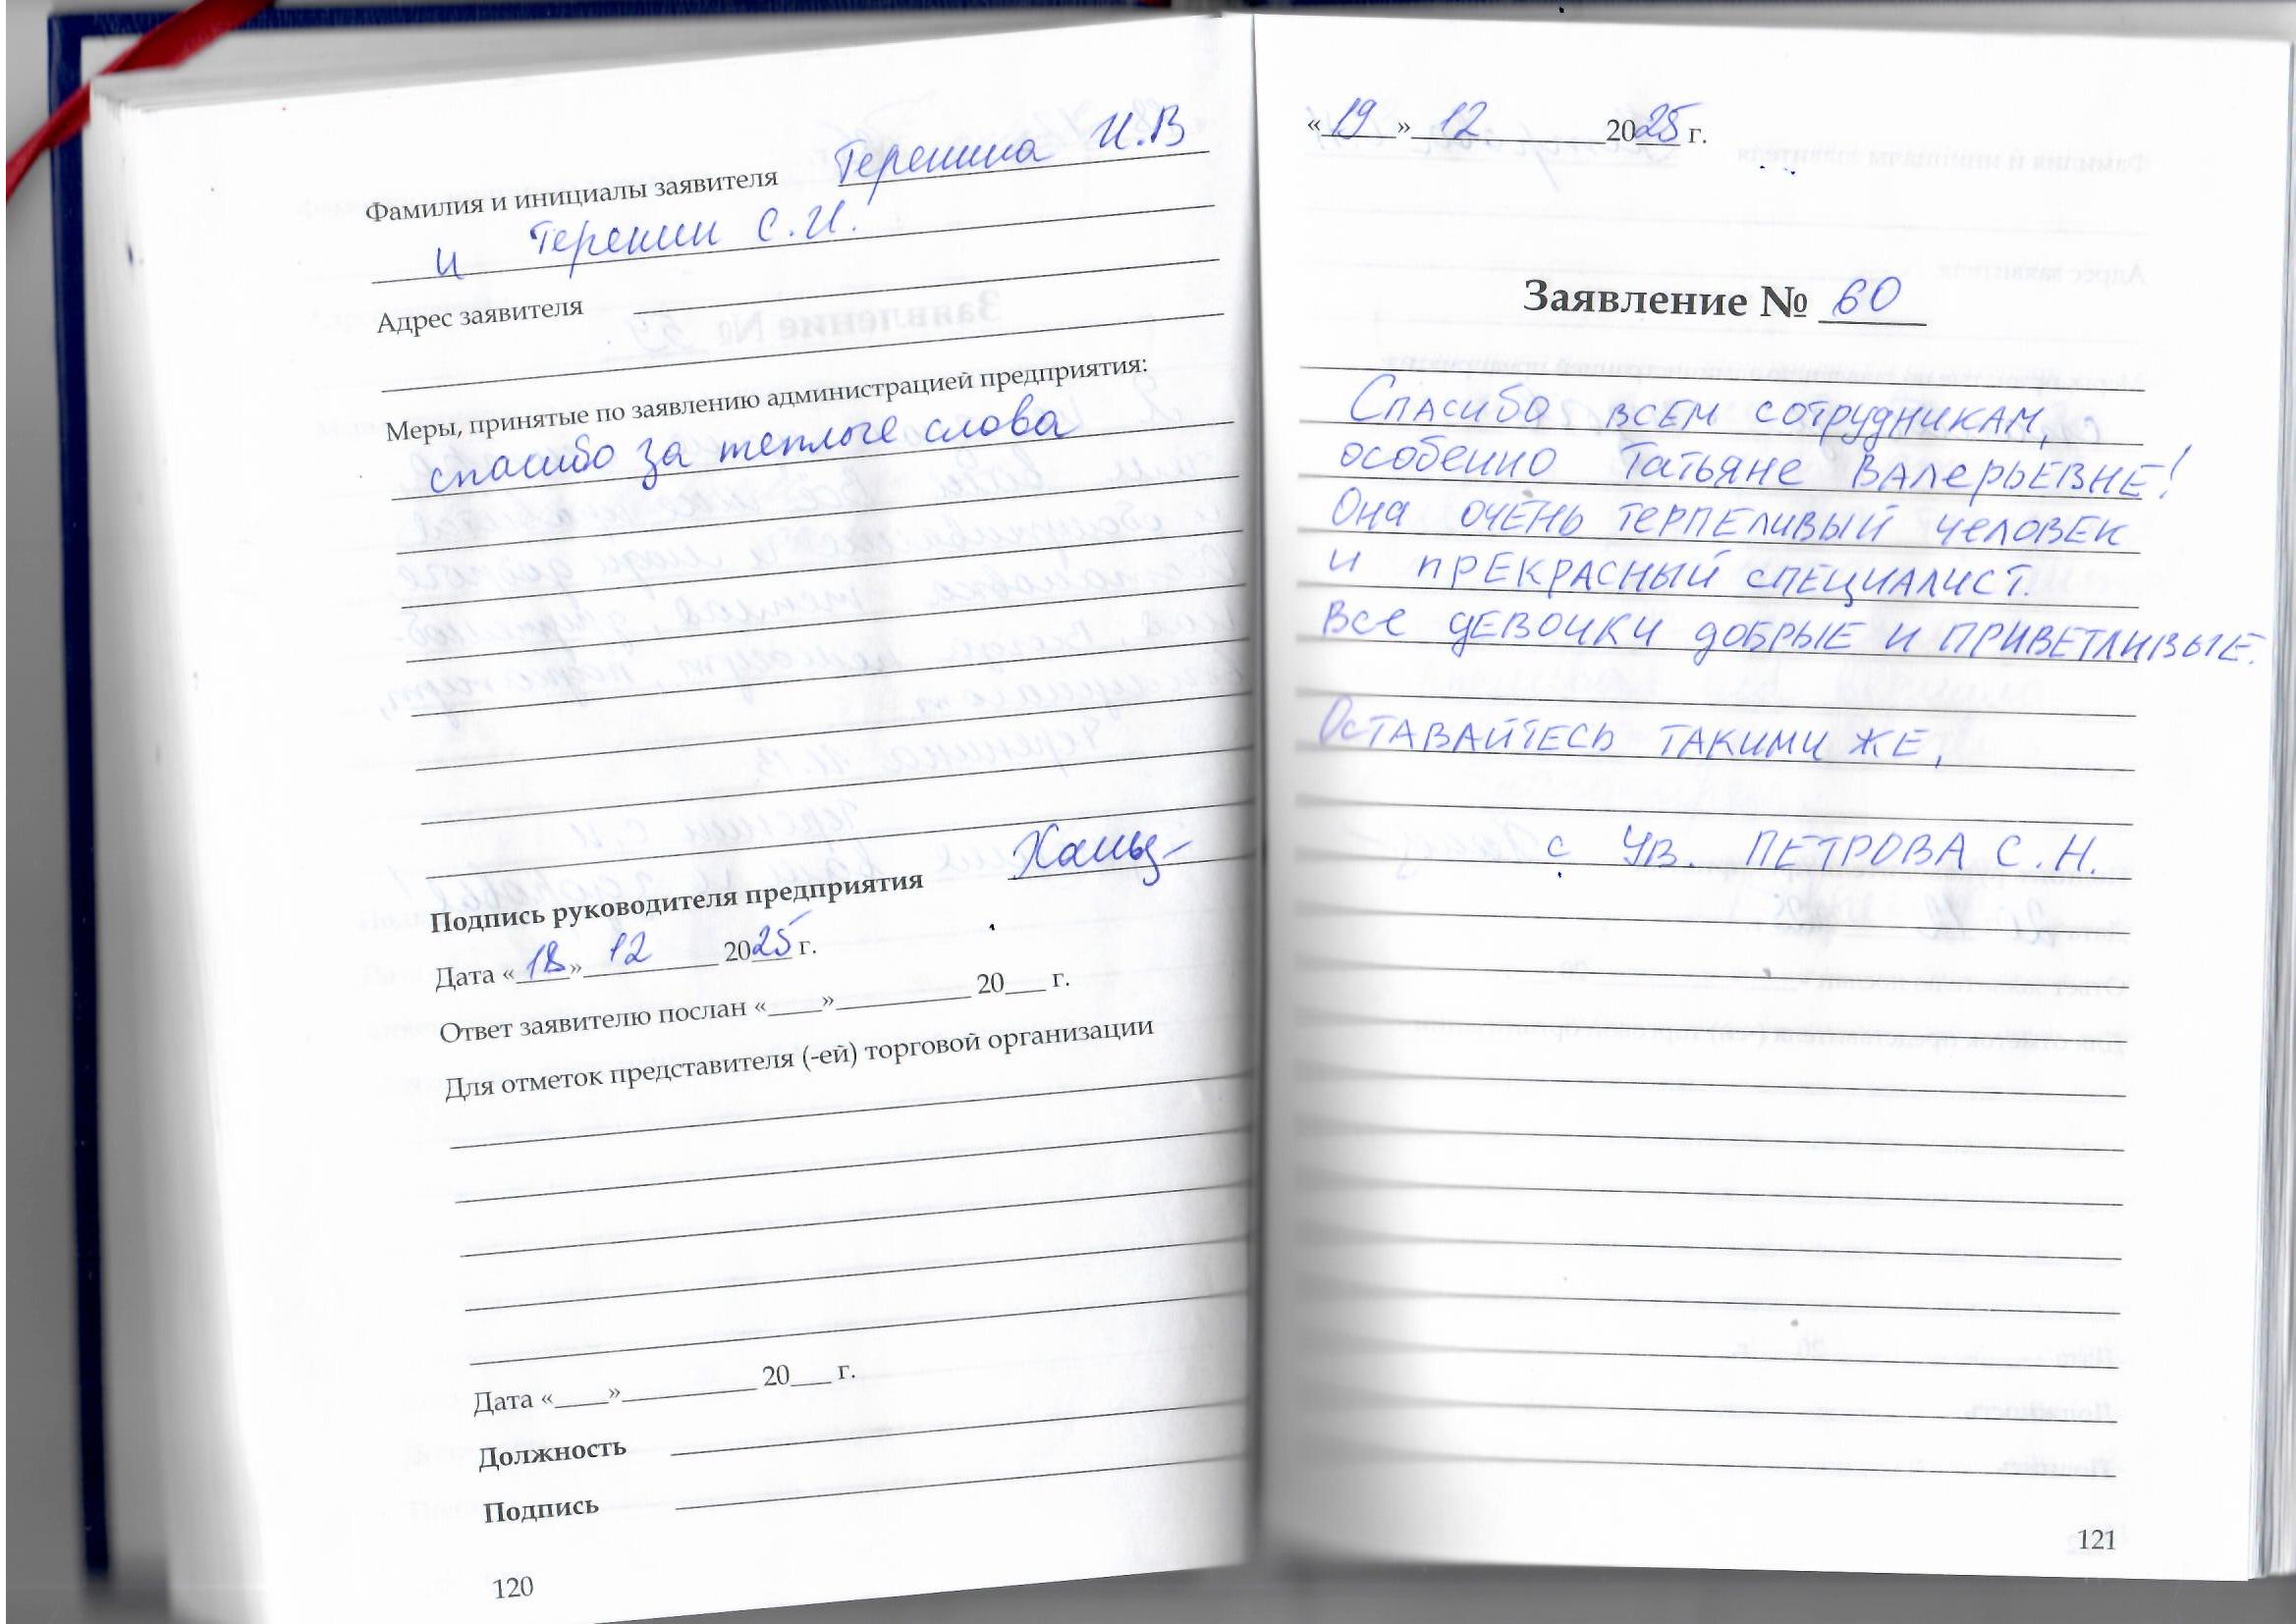 Фамилия и инициалы заявителя Теренина И.В
и Теренин С.И.
Адрес заявителя
Меры, принятые по заявлению администрацией предприятия:
спасибо за теплые слова
Подпись руководителя предприятия
Дата «18» 12 2025 г.
Ответ заявителю послан «____»__________ 20___ г.
Для отметок представителя (-ей) торговой организации
Дата «____»__________ 20___ г.
Должность
Подпись
120
«19» 12 2025 г.
Заявление № 60
Спасибо всем сотрудникам,
особенно Татьяне Валерьевне!
Она очень терпеливый человек
и прекрасный специалист.
Все девочки добрые и приветливые.
Оставайтесь такими же,
с Ув. Петрова С.Н.
121